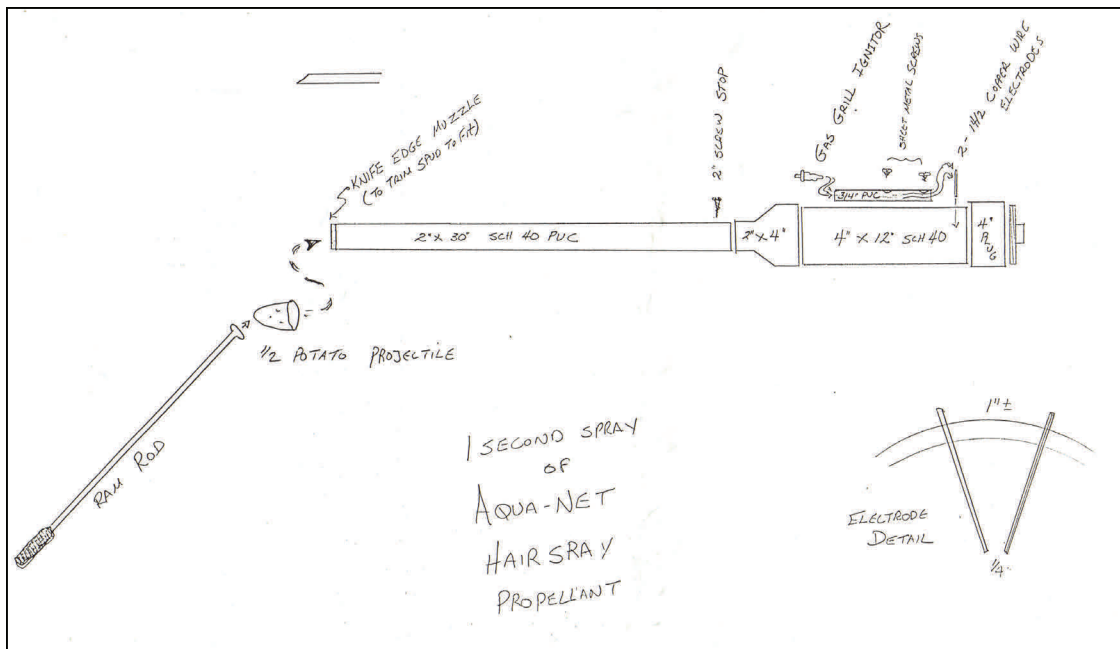 KNIFE EDGE MUZZLE
(TO TRIM SPUD TO FIT)
2" X 30" SCH 40 PVC
2" SCREW STOP
2" X 4"
GAS GRILL IGNITOR
SHEET METAL SCREWS
2 - 14/2 COPPER WIRE
ELECTRODES
3/4" PVC
4" X 12" SCH 40
4"
PLUG
1/2 POTATO PROJECTILE
RAM ROD
1 SECOND SPRAY
OF
AQUA-NET
HAIR SRAY
PROPELLANT
1" ±
ELECTRODE
DETAIL
1/4"